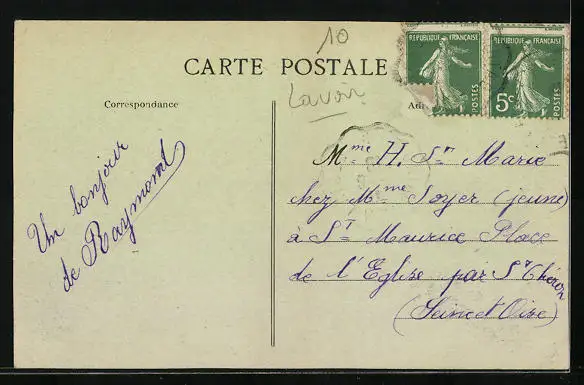 10
CARTE POSTALE
Lavoir
Correspondance
RÉPUBLIQUE FRANÇAISE
POSTES
RÉPUBLIQUE FRANÇAISE
5c
POSTES
Un bonjour
de Raymond
Mme H. St Marie
chez Mme Soyer (jeune)
à St Maurice Place
de l'Eglise par St Chéron
(Seine et Oise)